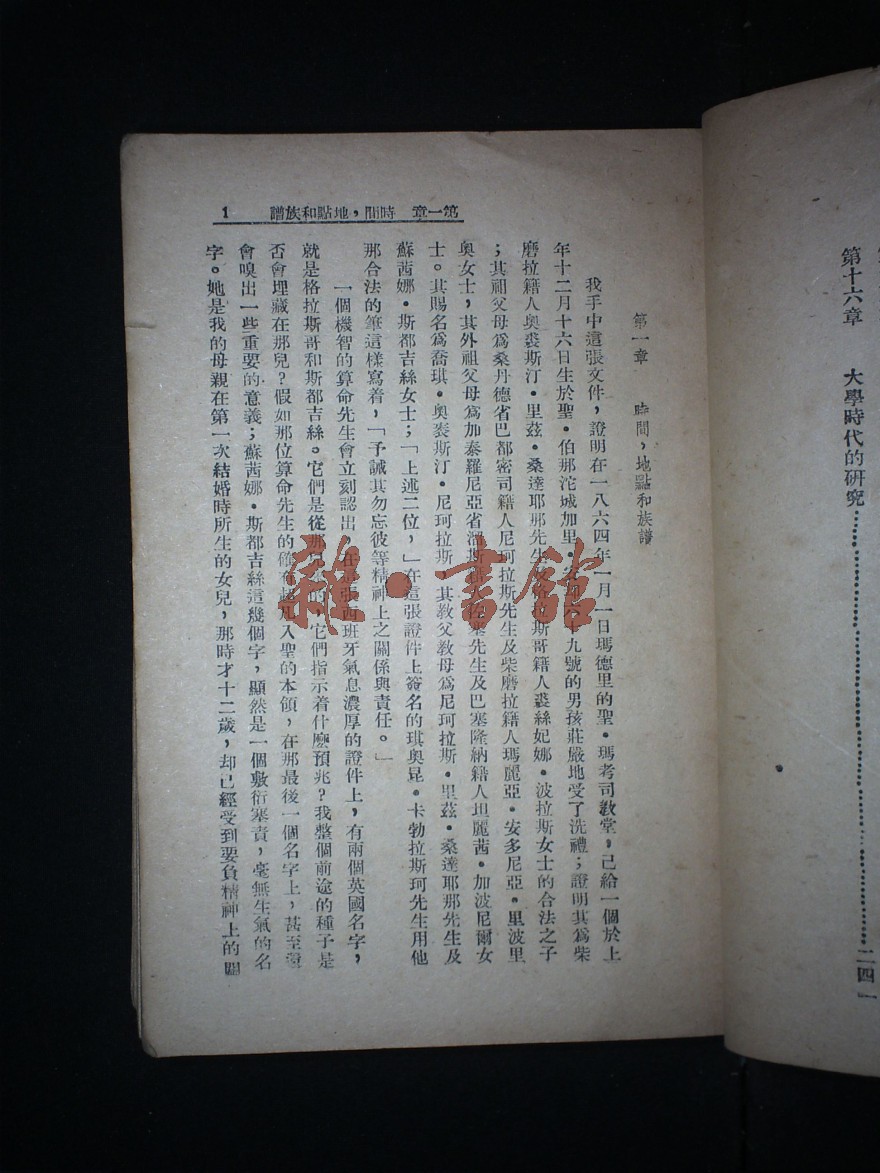 第十六章 大學時代的研究……二四一
第一章 時間，地點和族譜 1
第一章 時間，地點和族譜
我手中這張文件，證明在一八六四年一月一日瑪德里的聖•瑪考司教堂，已給一個於上
年十二月十六日生於聖•伯那沱城加里•九號的男孩莊嚴地受了洗禮；證明其爲柴
磨拉籍人奧裘斯汀•里茲•桑達耶那先生及格拉斯哥籍人裘絲妃娜•波拉斯女士的合法之子
；其祖父母爲桑丹德省巴都密司籍人尼珂拉斯先生及柴磨拉籍人瑪麗亞•安多尼亞•里波里
奧女士，其外祖父母爲加泰羅尼亞省先生及巴塞隆納籍人坦麗茜•加波尼爾女
士。其賜名爲喬琪•奧裘斯汀•尼珂拉斯，其教父教母爲尼珂拉斯•里茲•桑達耶那先生及
蘇茜娜•斯都吉絲女士；「上述二位，」在這張證件上簽名的琪奧昆•卡勃拉斯珂先生用他
那合法的筆這樣寫着，「予誡其勿忘彼等精神上之關係與責任。」
一個機智的算命先生會立刻認出，在這張西班牙氣息濃厚的證件上，有兩個英國名字，
就是格拉斯哥和斯都吉絲。它們是從那兒來的，它們指示着什麼預兆？我整個前途的種子是
否會埋藏在那兒？假如那位算命先生的確有超凡入聖的本領，在那最後一個名字上，甚至還
會嗅出一些重要的意義；蘇茜娜•斯都吉絲這幾個字，顯然是一個敷衍塞責，毫無生氣的名
字。她是我的母親在第一次結婚時所生的女兒，那時才十二歲，却已經受到要負精神上的關
雜•書館